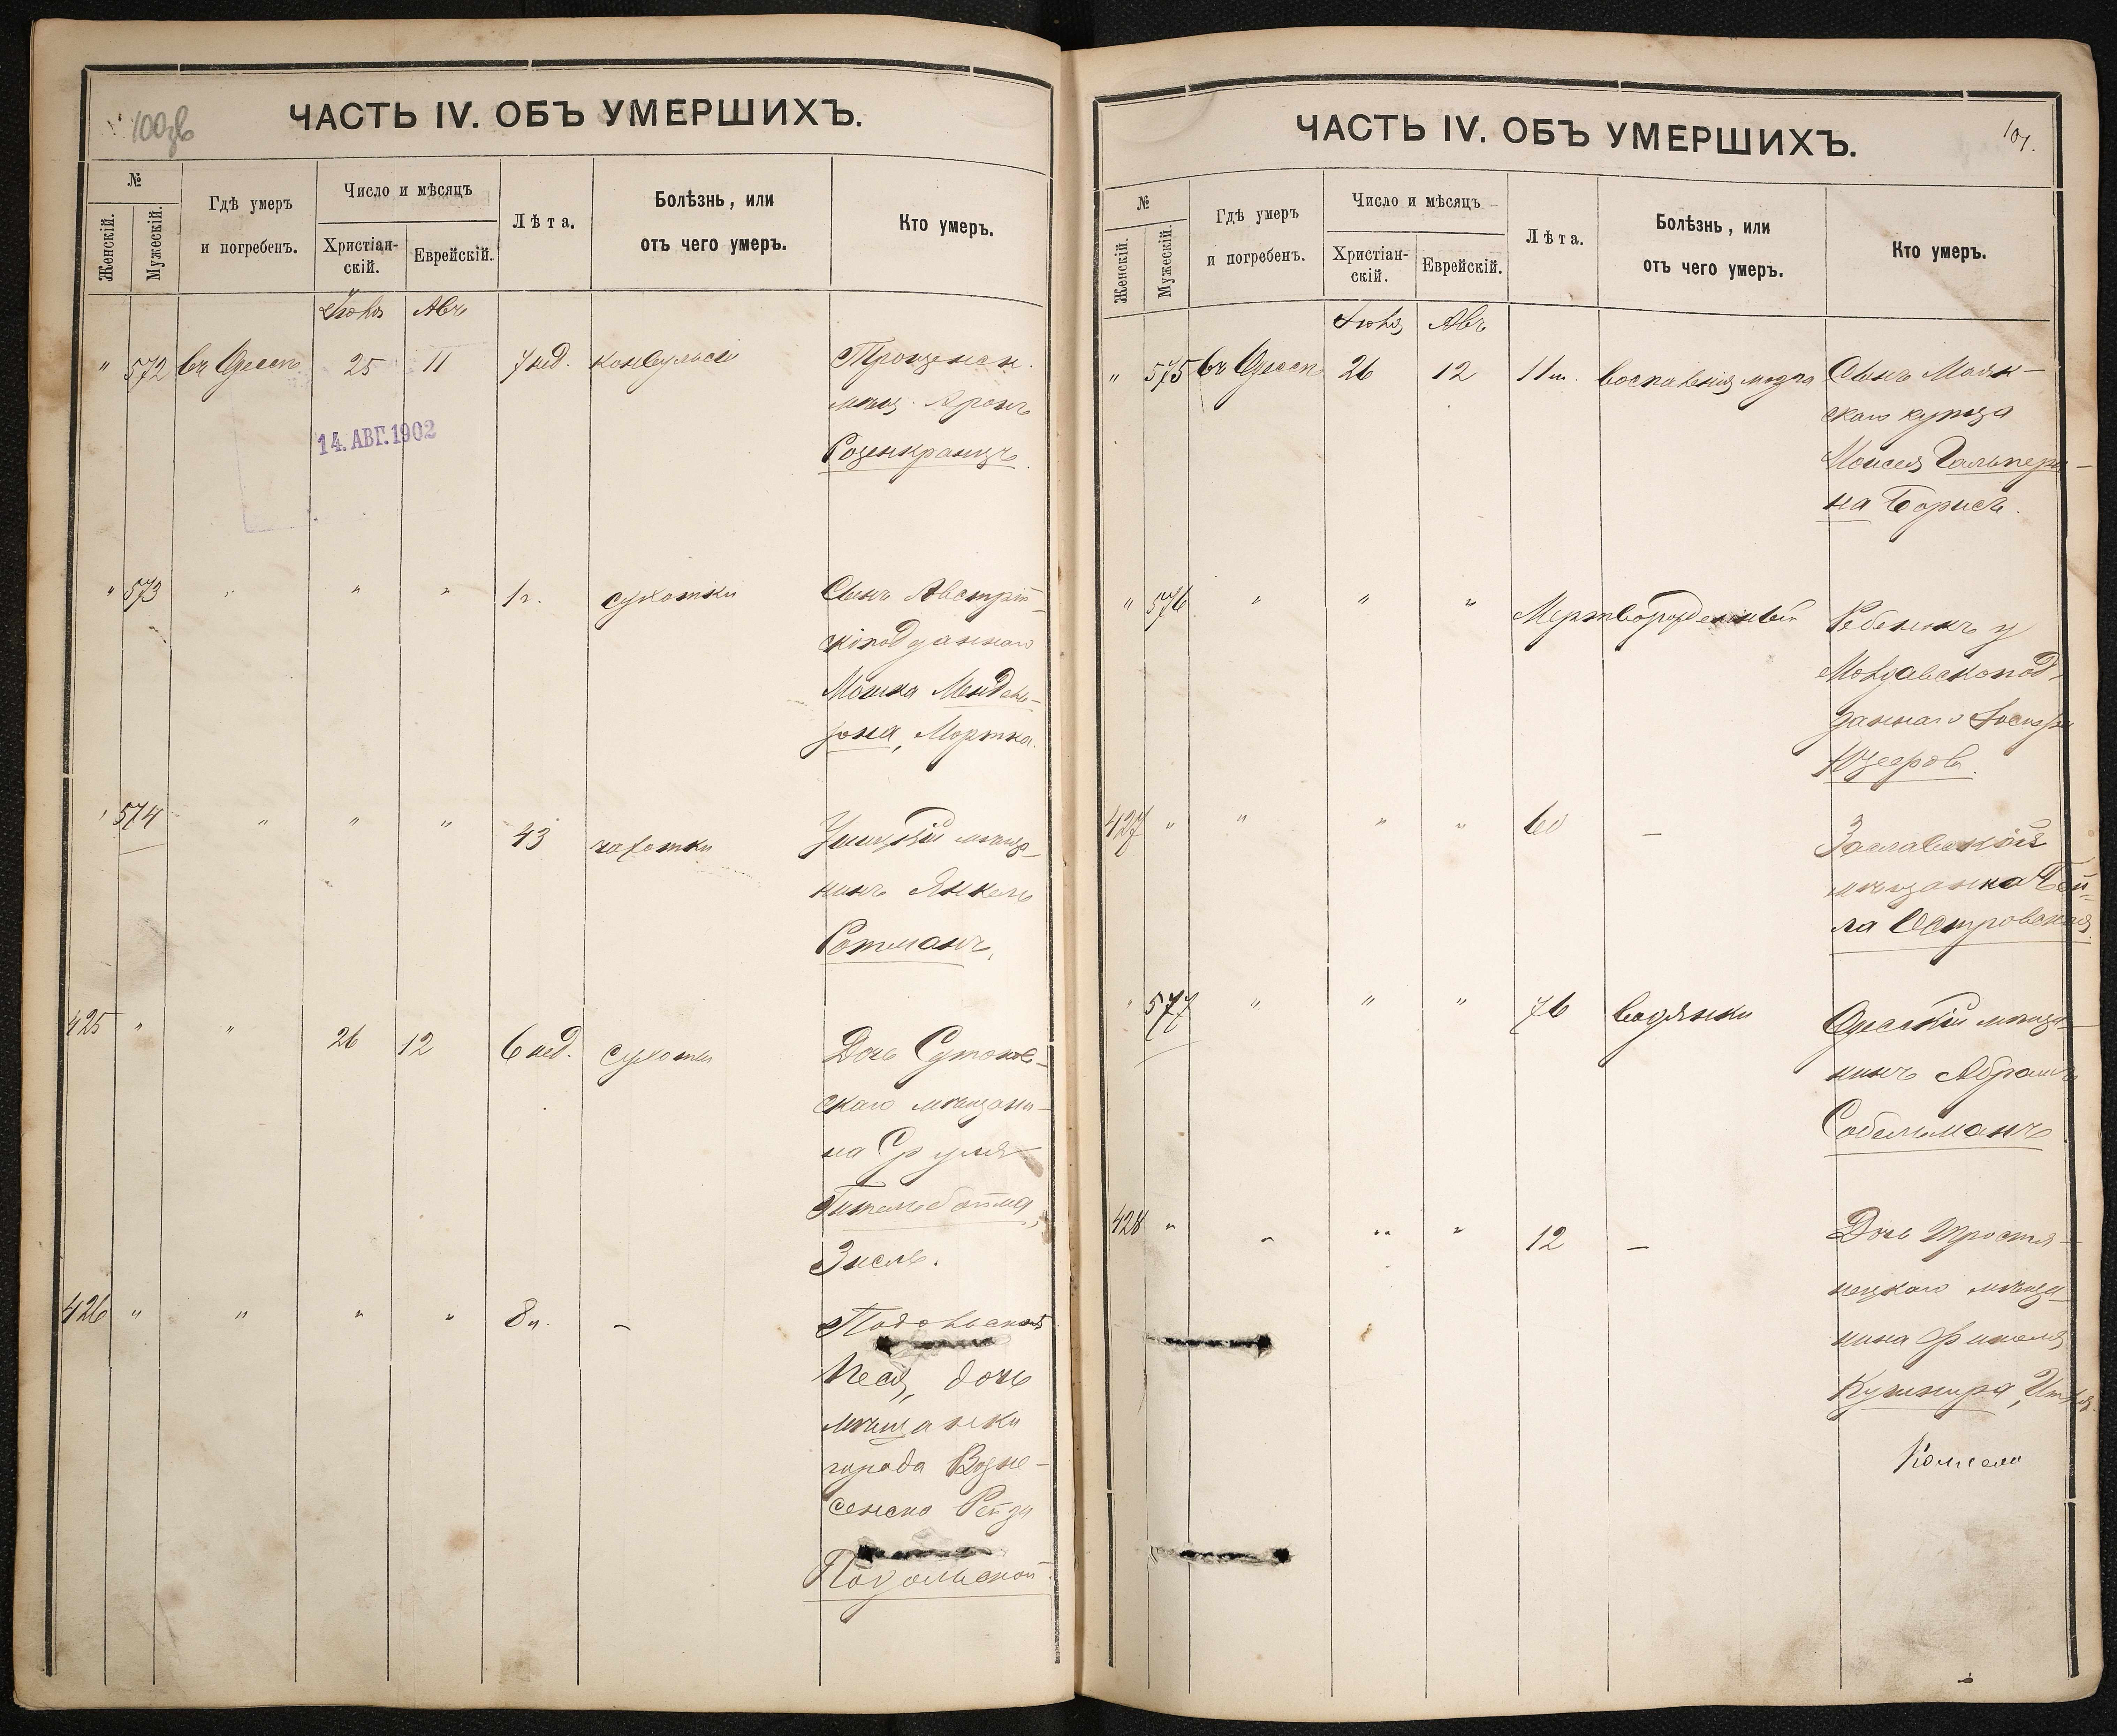 100об
ЧАСТЬ IV. ОБЪ УМЕРШИХЪ.
№
Женскій.
Мужескій.
Гдѣ умеръ
и погребенъ.
Число и мѣсяцъ
Христіан-
скій.
Еврейскій.
Лѣта.
Болѣзнь, или
отъ чего умеръ.
Кто умеръ.
Іюля Авъ
" 572 въ Одессѣ 25 11 7 нед. конвульсіи
мѣщ. Аронъ
Розенкранцъ
14. АВГ. 1902
" 573 " " " 1 г. сухотки Сынъ Австрій-
скоподданнаго
Мошка Мендель-
зона, Мортка.
" 574 " " " 43 чахотки Ушицкій мѣща-
нинъ Янкель
Ротманъ.
425 " " 26 12 6 нед. сухотки Дочь
скаго мѣщани-
на Сруля
Зисля.
426 " " " " 8 – Подольская
Песя, дочь
мѣщанки
города Возне-
сенска Рейзи
Подольской.
101.
ЧАСТЬ IV. ОБЪ УМЕРШИХЪ.
№
Женскій.
Мужескій.
Гдѣ умеръ
и погребенъ.
Число и мѣсяцъ
Христіан-
скій.
Еврейскій.
Лѣта.
Болѣзнь, или
отъ чего умеръ.
Кто умеръ.
Іюля Авъ
" 575 въ Одессѣ 26 12 11 м. воспаленія мозга Сынъ Маяк-
скаго купца
Моисея Гальпери-
на Борисъ.
" 576 " " " Мертворожденный Ребенокъ у
Молдавскопод-
даннаго
427 " " " " 60 – Заславская
мѣщанка Бей-
ла Островская.
" 577 " " " 76 водянки Одесскій мѣща-
нинъ Абрамъ
Собельманъ
428 " " " " 12 – Дочь Тростя-
нецкаго мѣща-
нина Фишеля
Кушнира,